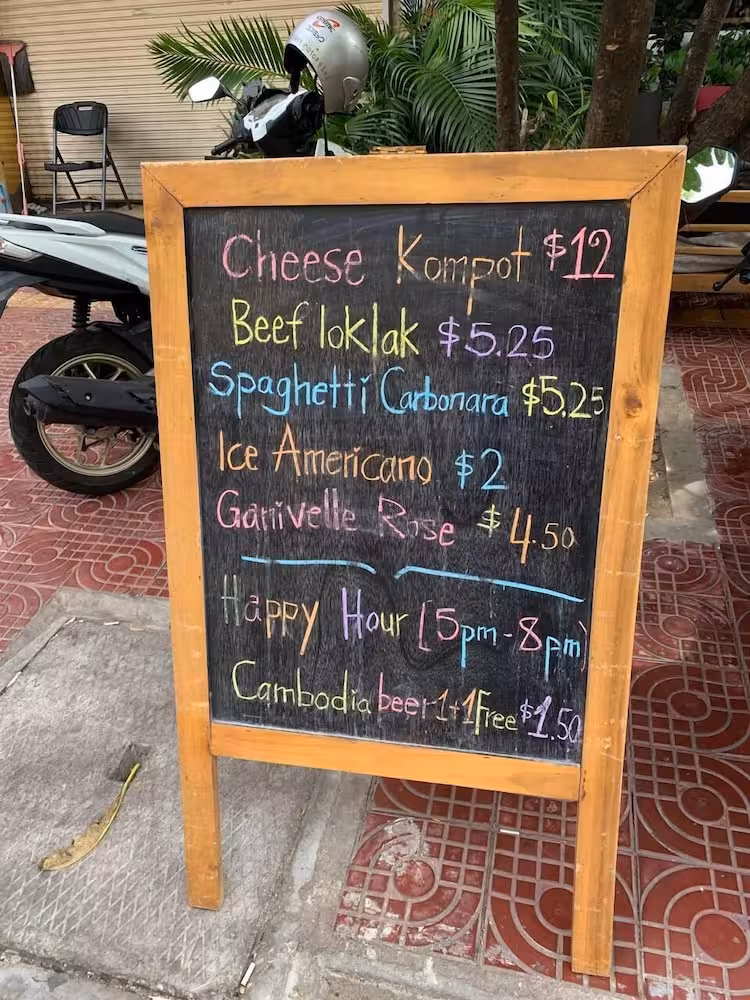 Cheese Kompot $12
Beef loklak $5.25
Spaghetti Carbonara $5.25
Ice Americano $2
Ganivelle Rose $4.50
Happy Hour [5pm-8pm]
Cambodia beer 1+1 Free $1.50